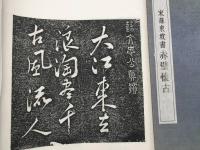 大江東去
浪淘盡千
古風流人
宋蘇東坡書赤壁懷古